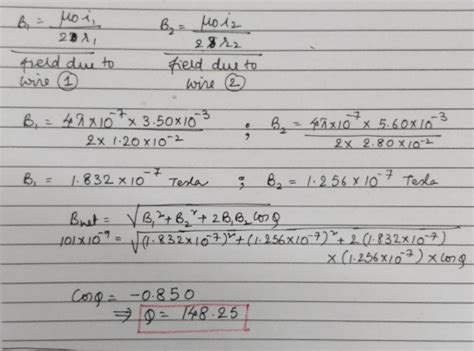 B₁ = μ₀ i₁ / 2 r₁    B₂ = μ₀ i₂ / 2 r₂
field due to wire ①    field due to wire ②
B₁ = 4π×10⁻⁷ × 3.50×10⁻³ / 2 × 1.20×10⁻² ; B₂ = 4π×10⁻⁷ × 5.60×10⁻³ / 2 × 2.80×10⁻²
B₁ = 1.832 × 10⁻⁷ Tesla ; B₂ = 1.256 × 10⁻⁷ Tesla
Bnet = √(B₁² + B₂² + 2B₁B₂ cosQ)
101×10⁻⁹ = √((1.832×10⁻⁷)² + (1.256×10⁻⁷)² + 2(1.832×10⁻⁷)
× (1.256×10⁻⁷) × cosQ
CosQ = -0.850
⇒ Q = 148.25